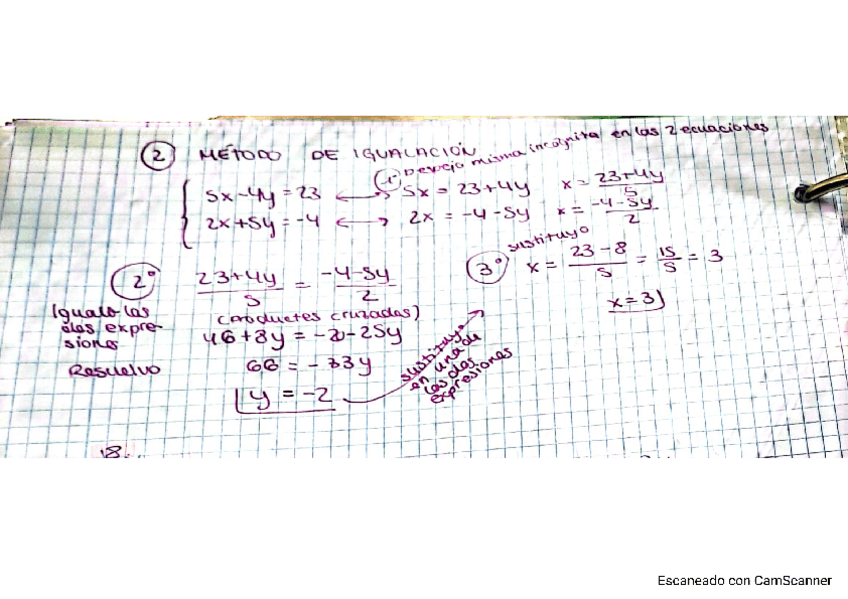 ② MÉTODO DE IGUALACIÓN
1º Despejo misma incógnita en las 2 ecuaciones
5x-4y=23 ⟷ 5x = 23+4y x = 23+4y/5
2x+5y=-4 ⟷ 2x = -4-5y x = -4-5y/2
2º 23+4y/5 = -4-5y/2
Igualo las dos expresiones
(productos cruzadas)
46+8y = -20-25y
Resuelvo 66 = -33y
y = -2
sustituyo en una de las dos expresiones
3º sustituyo x = 23-8/5 = 15/5 = 3
x=3
18.
Escaneado con CamScanner